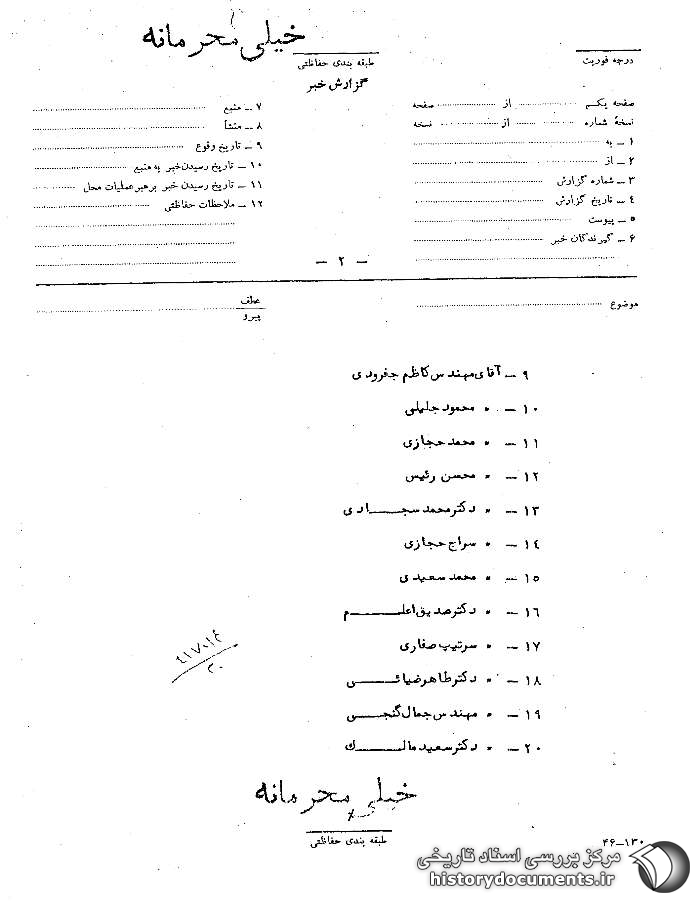 خیلی محرمانه
درجه فوریت
طبقه بندی حفاظتی
گزارش خبر
صفحه یکم از صفحه
نسخهٔ شماره از نسخه
۱ ـ به
۲ ـ از
۳ ـ شماره گزارش
٤ ـ تاریخ گزارش
۵ ـ پیوست
۶ ـ گیرندگان خبر
۷ ـ منبع
۸ ـ منشأ
۹ ـ تاریخ وقوع
۱۰ ـ تاریخ رسیدن خبر به منبع
۱۱ ـ تاریخ رسیدن خبر برهبر عملیات محل
۱۲ ـ ملاحظات حفاظتی
ـ ۲ ـ
موضوع
عطف
پیرو
۹ ـ آقای مهندس کاظم جفرودی
۱۰ ـ " محمود جلیلی
۱۱ ـ " محمد حجازی
۱۲ ـ " محسن رئیس
۱۳ ـ " دکتر محمد سجادی
۱٤ ـ " سراج حجازی
۱۵ ـ " محمد سعیدی
۱۶ ـ " دکتر صدیق اعلم
۱۷ ـ " سرتیپ صفاری
۱۸ ـ " دکتر طاهر ضیائی
۱۹ ـ " مهندس جمال گنجی
۲۰ ـ " دکتر سعید مالک
خیلی محرمانه
طبقه بندی حفاظتی
۴۶-۱۳۰
مرکز بررسی اسناد تاریخی
historydocuments.ir